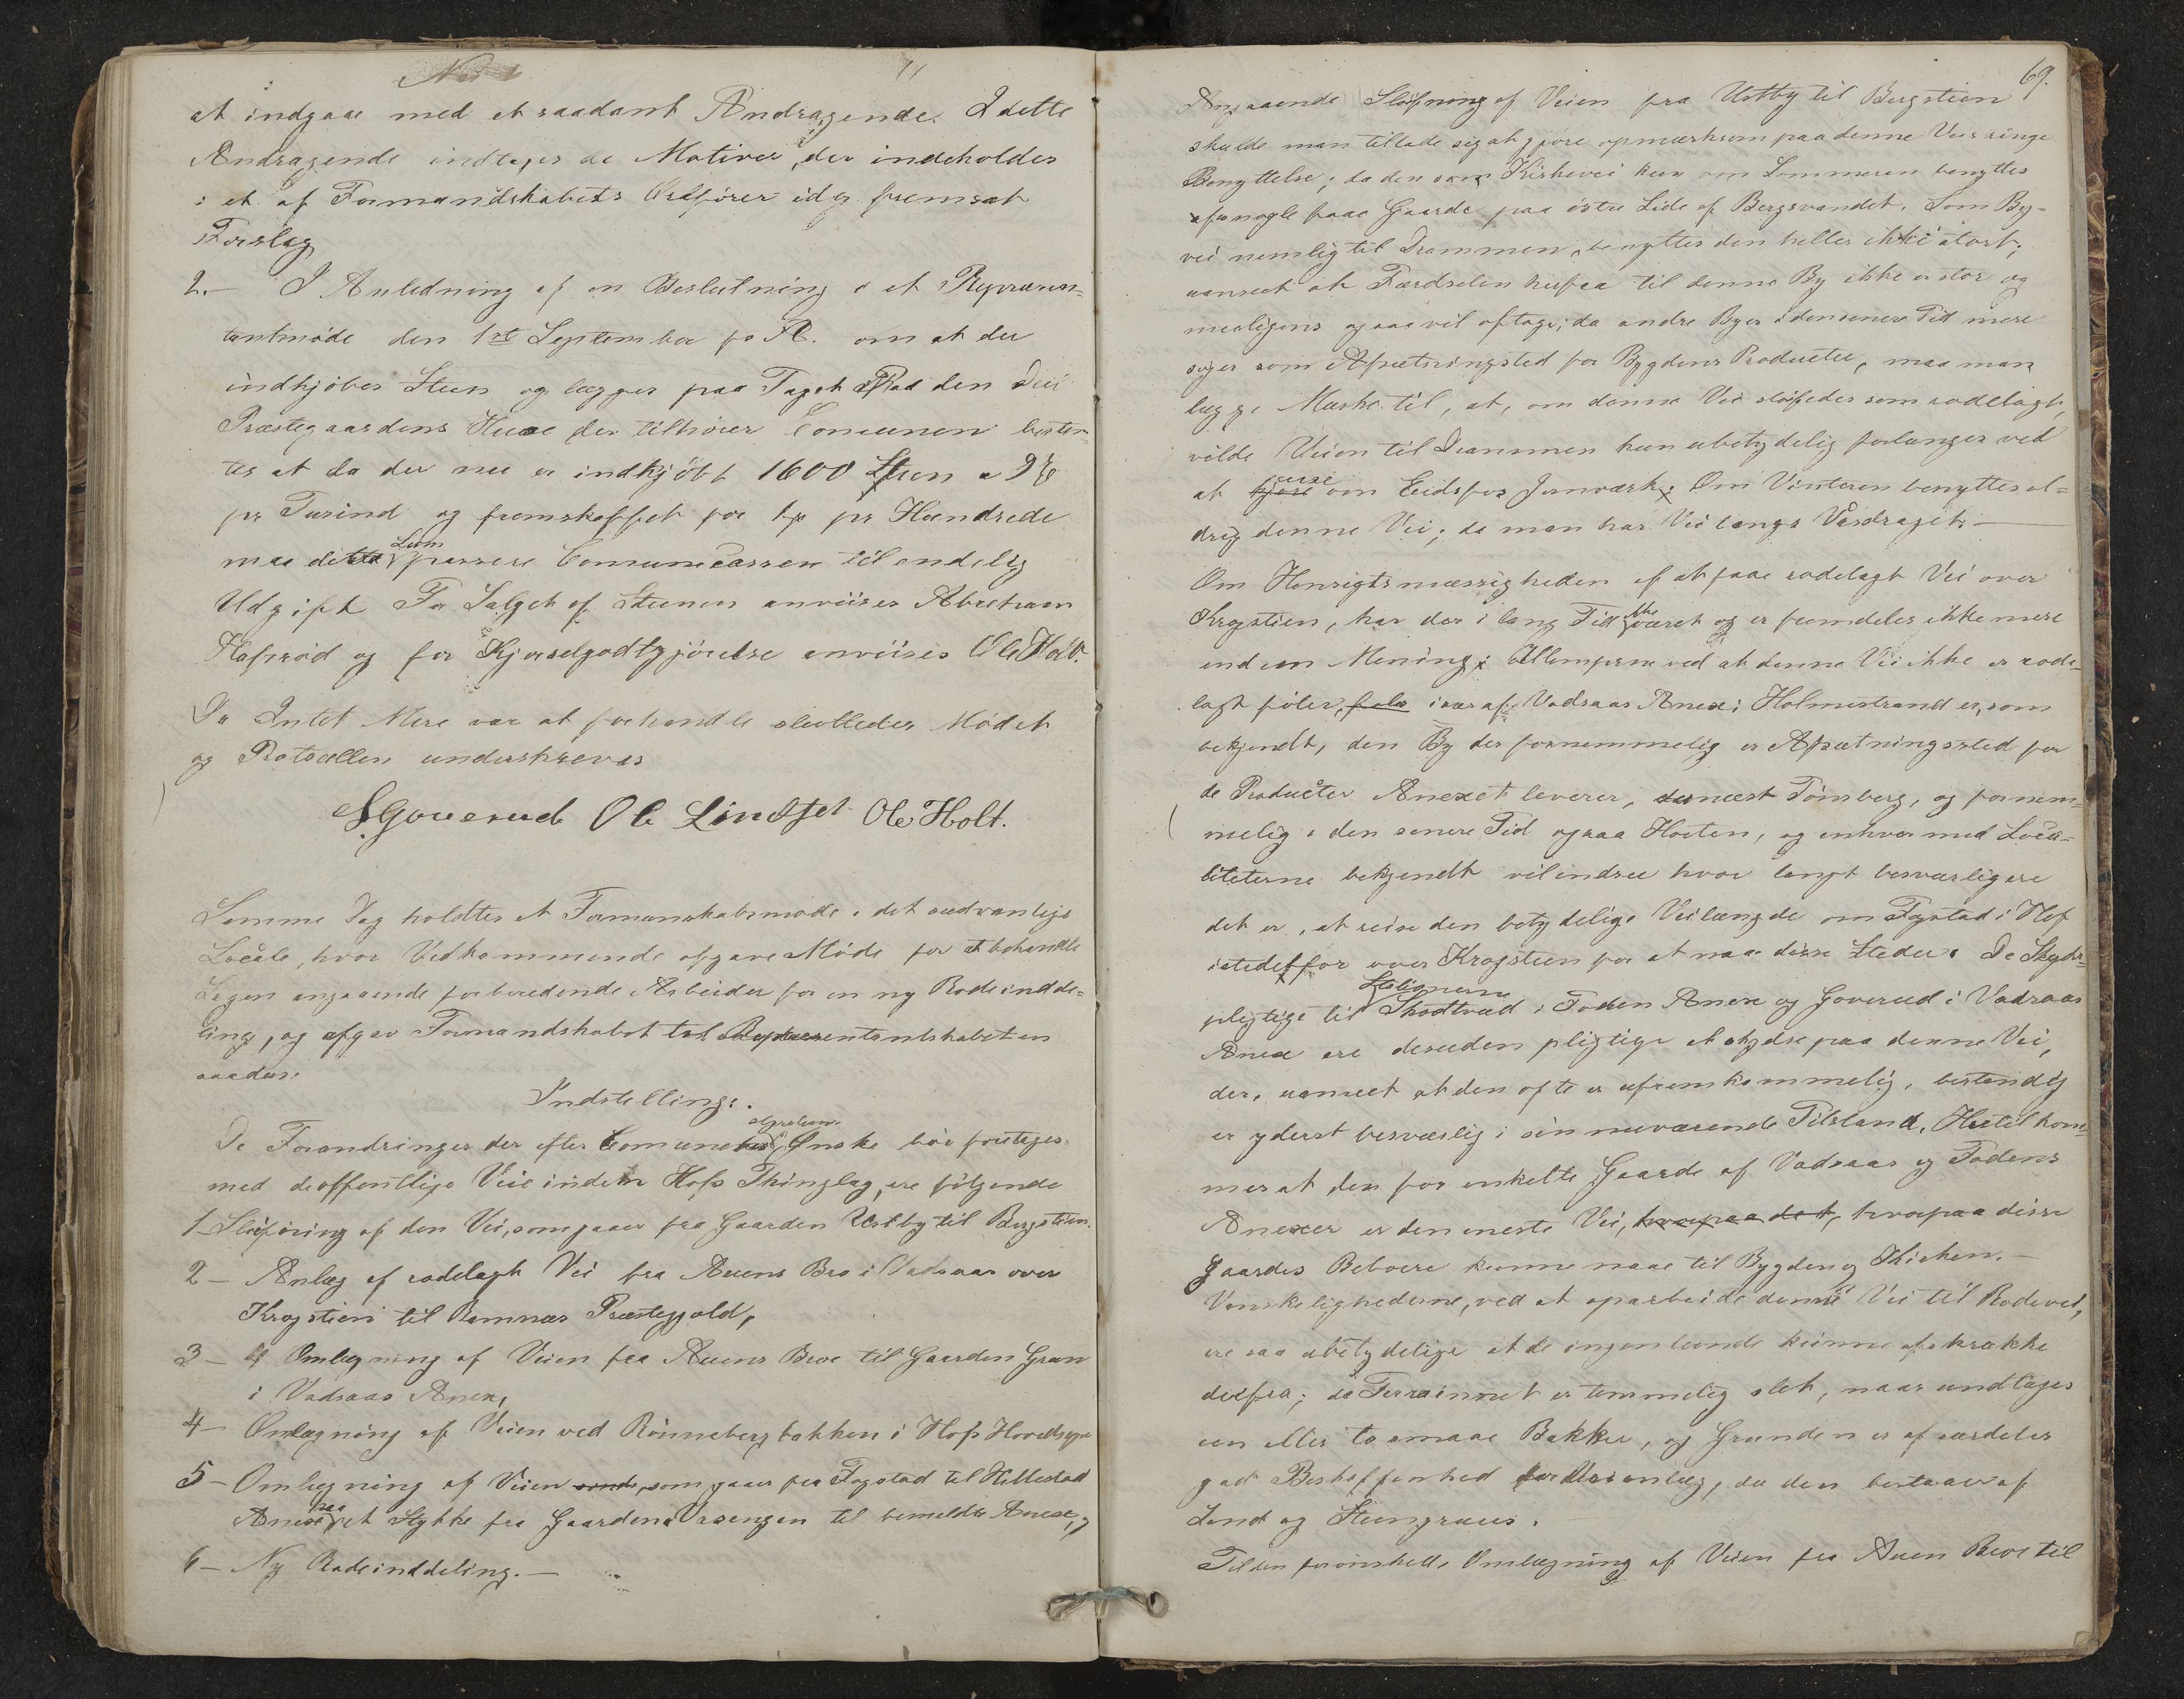 at indgaae med et saadant Andragende. I dette
Andragende indtages de Motiver, der indeholdes
i et af Formandskabets Ordfører idag fremsat
Forslag
2.- I Anledning af en Beslutning i et Repræsen-
tantmøde den 1ste September f. A. om at der
indkjøbes Steen og lægges paa Taget paa den Deel
Præstegaardens Huse der tilhører Comunen bestem-
tes at da der nu er indkjøbt 1600 Steen a 9
pr Tusind og fremskaffet for pr Hundrede
maa dette Sum passere Comunecassen til endelig
Udgift For Salget af Stenen anviises Abraham
Hafsrød og for Kjørselgodtgjørelse anviises Ole Holt.
Da Intet Mere var at forhandle sluttedes Mødet
og Protocollen underskreves
S. Gouerud Ole Lindsjet Ole Holt.
Samme Dag holdtes et Formanskabsmøde i det sædvanlige
Locale, hvor Vedkommende afgave Møde for at behandle
Sagen angaaende forberedende Arbeider for en ny Rodeindde-
ling, og afgav Formandskabet til Repræsentantskabet en
saadan
Indstilling:
De Forandringer der efter Comunebestyrelsens Ønske bør foretages
med de offentlige Veie inden Hofs Thinglag, ere følgende
1 Sløifning af den Vei, som gaaer fra Gaarden Østby til Bergstien.
2 - Anlæg af rodelagt Vei fra Auens Bro i Vadsaas over
Krogstien til Ramnæs Præstegjæld,
3 - Omlægning af Veien fra Auens Broe til Gaarden Gran
i Vadsaas Anex,
4 - Omlægning af Veien ved Rønnebergbakken i Hofs Hovedsogn
5 - Omlægning af Veien som gaaer fra Fogstad til Hillestad
Anex paa et Stykke fra Gaarden Aasengen til bemeldte Anex, og
6 - Ny Rodeinddeling. -
69.
Angaaende Sløifning af Veien fra Østby til Bergstien
skulde man tillade sig at gjøre opmærksom paa denne Veis ringe
Benyttelse; da den som Kirkevei kun om Sommeren benyttes
af nogle faae Gaarde paa østre Side af Bergsvandet. Som By-
vei nemlig til Drammen, benyttes den heller ikke stort;
uanseet at Færdselen herfra til denne By ikke er stor og
meligens ogsaa vil aftage; da andre Byer i den senere Tid mere
søges som Afsætningsted for Bygdens Producter, maa man
lægge Mærke til, at, om denne Vei sløifedes som rodelagt,
vilde Veien til Drammen kun ubetydelig forlænges ved
at kjøre reise om Eidsfos Jernværk; Om Vinteren benyttes al-
drig denne Vei; da man har Vei langs Vasdraget. -
Om Hensigtsmæssigheden af at faae rodelagt Vei over
Krogstien, har der i lang Tid ikke været og er fremdeles ikke mere
end een Mening; Ulemperne ved at denne Vei ikke er rode-
lagt føles, føles især af Vadsaas Anex; Holmestrand er, som
bekjendt, den By der fornemmelig er Afsætningssted for
de Producter Anexet leverer, dernæst Tønsberg, og fornem-
melig i den senere Tid ogsaa Horten, og enhver med Loca-
liteterne bekjendt vil indsee hvor langt besværligere
det er, at reise den betydelige Veilængde om Fogstad i Hof
istedetfor over Krogstien for at naae disse Steder. De Skyds-
pligtige til Stationerne Skodtvad i Fodens Anex og Goverud i Vadsaas
Anex ere desuden pligtige at skydse paa denne Vei,
der, uanseet at den ofte er ufremkommelig, bestandig
er yderst besværlig i sin nuværende Tilstand. Hertil kom-
mer at den for enkelte Gaarde af Vadsaas og Fodens
Anexer er den eneste Vei, hvorpaa det, hvorpaa disse
Gaardes Beboere kunne naae til Bygden og Kirken. -
Vanskelighederne, ved at oparbeide denne Vei til Rodevei,
ere saa ubetydelige at de ingenlunde kunne afskrække
derfra; da Terrainnet er temmelig slet, naar undtages
een eller to smaae Bakker, og Grunden er af særdeles
god Beskaffenhed for Veianlæg, da den bestaaer af
Sand og Steengruus.
Til den forønskede Omlægning af Veien fra Auen Broe til